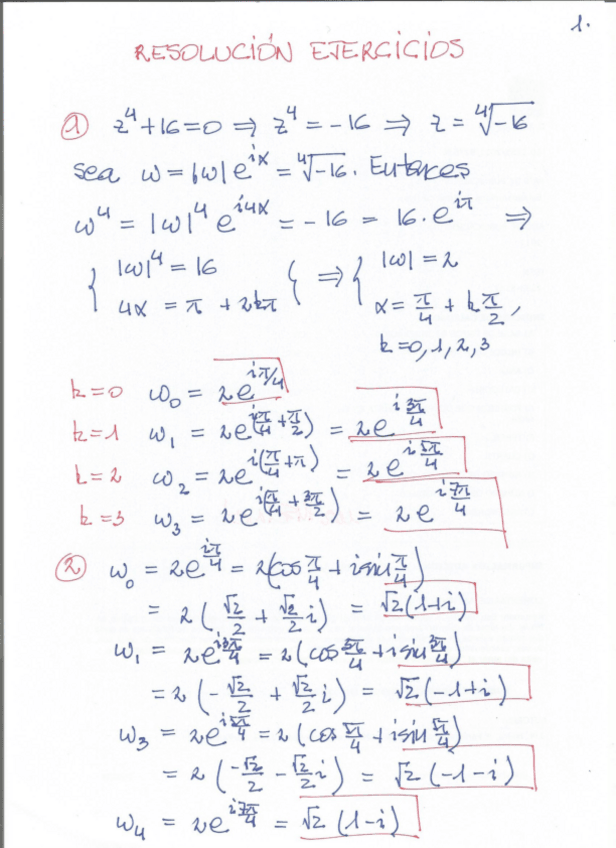 1.
RESOLUCIÓN EJERCICIOS
① z⁴+16=0 ⇒ z⁴=-16 ⇒ z=⁴√-16
sea ω=|ω|e^{iα}=⁴√-16. Entonces
ω⁴=|ω|⁴e^{i4α}=-16=16·e^{iπ} ⇒
{ |ω|⁴=16 { ⇒ { |ω|=2
4α=π+2kπ α=π/4+kπ/2,
k=0,1,2,3
k=0 ω₀=2e^{iπ/4}
k=1 ω₁=2e^{i(π/4+π/2)}=2e^{i3π/4}
k=2 ω₂=2e^{i(π/4+π)}=2e^{i5π/4}
k=3 ω₃=2e^{i(π/4+3π/2)}=2e^{i7π/4}
② ω₀=2e^{iπ/4}=2(cos π/4+i sin π/4)
=2(√2/2+√2/2 i)=√2(1+i)
ω₁=2e^{i3π/4}=2(cos 3π/4+i sin 3π/4)
=2(-√2/2+√2/2 i)=√2(-1+i)
ω₃=2e^{i5π/4}=2(cos 5π/4+i sin 5π/4)
=2(-√2/2-√2/2 i)=√2(-1-i)
ω₄=2e^{i7π/4}=√2(1-i)